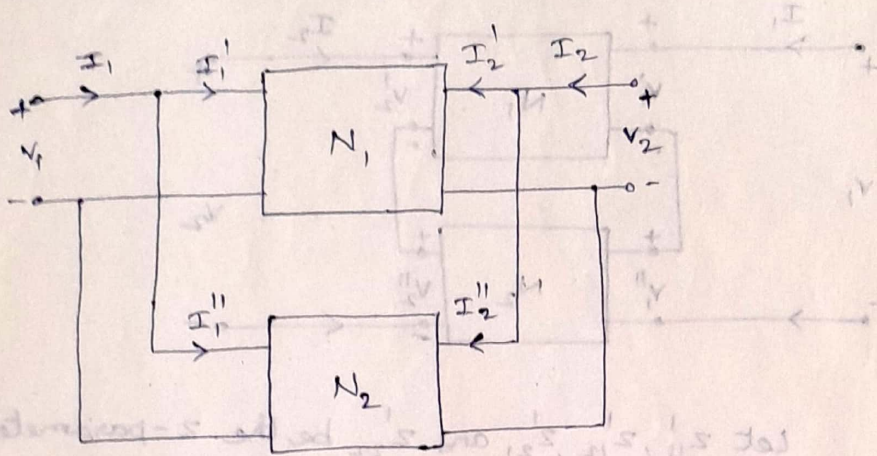 I₁ I₁' I₂' I₂
+ +
V₁ N₁ V₂
- -
I₁'' I₂''
N₂